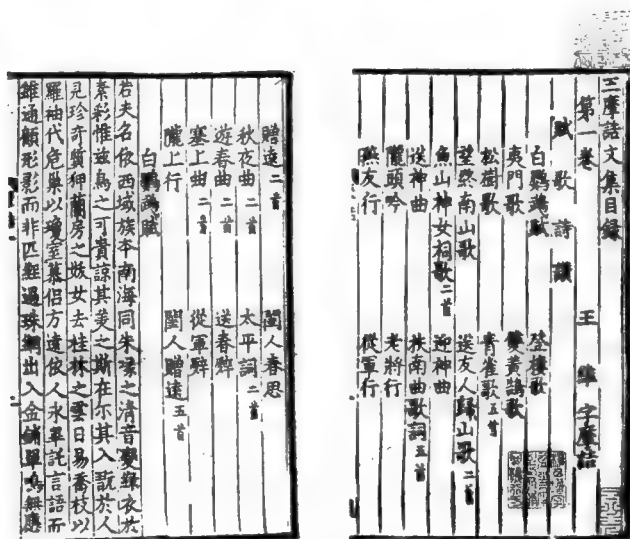 王摩詰文集目録
第一卷 王維字摩詰
賦歌詩讚
白鸚鵡賦 登樓歌
夷門歌 雙黃鵠歌
松樹歌 青雀歌五首
望終南山歌 送友人歸山歌二首
魚山神女祠歌二首 迎神曲
送神曲 扶南曲歌詞五首
隴頭吟 老將行
燕支行 從軍行
贈遠二首 閨人春思
秋夜曲二首 太平詞二首
遊春曲二首 送春辭
塞上曲二首 從軍辭
隴上行 閨人贈遠五首
白鸚鵡賦
若夫名依西域族本南海同朱喙之清音變綠衣於
素彩惟兹鳥之可貴諒其美之斯在尔其入翫於人
見珍奇質狎蘭房之妓女去桂林之雲日易喬枝以
羅袖代危巢以瓊室慕侣方遠依人永畢託言語而
雖通顧形影而非匹經過珠網出入金鋪單鳴無應